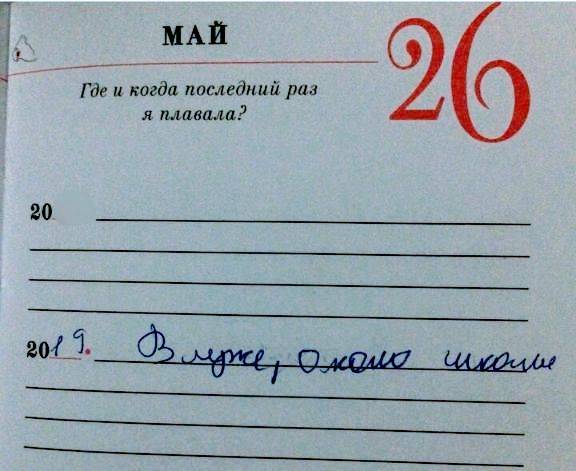 МАЙ
26
Где и когда последний раз
я плавала?
20
2019. В луже, около школы